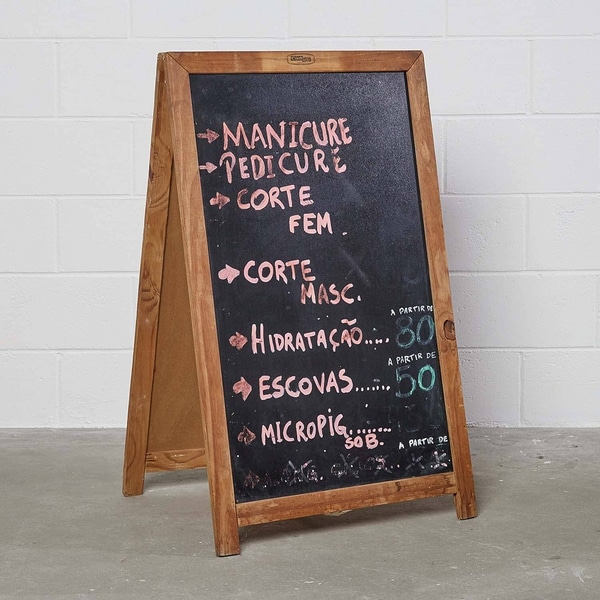 MANICURE
PEDICURE
CORTE
FEM.
CORTE
MASC.
A PARTIR DE
HIDRATAÇÃO.... 80
A PARTIR DE
ESCOVAS...... 50
MICROPIG.......
SOB.
A PARTIR DE